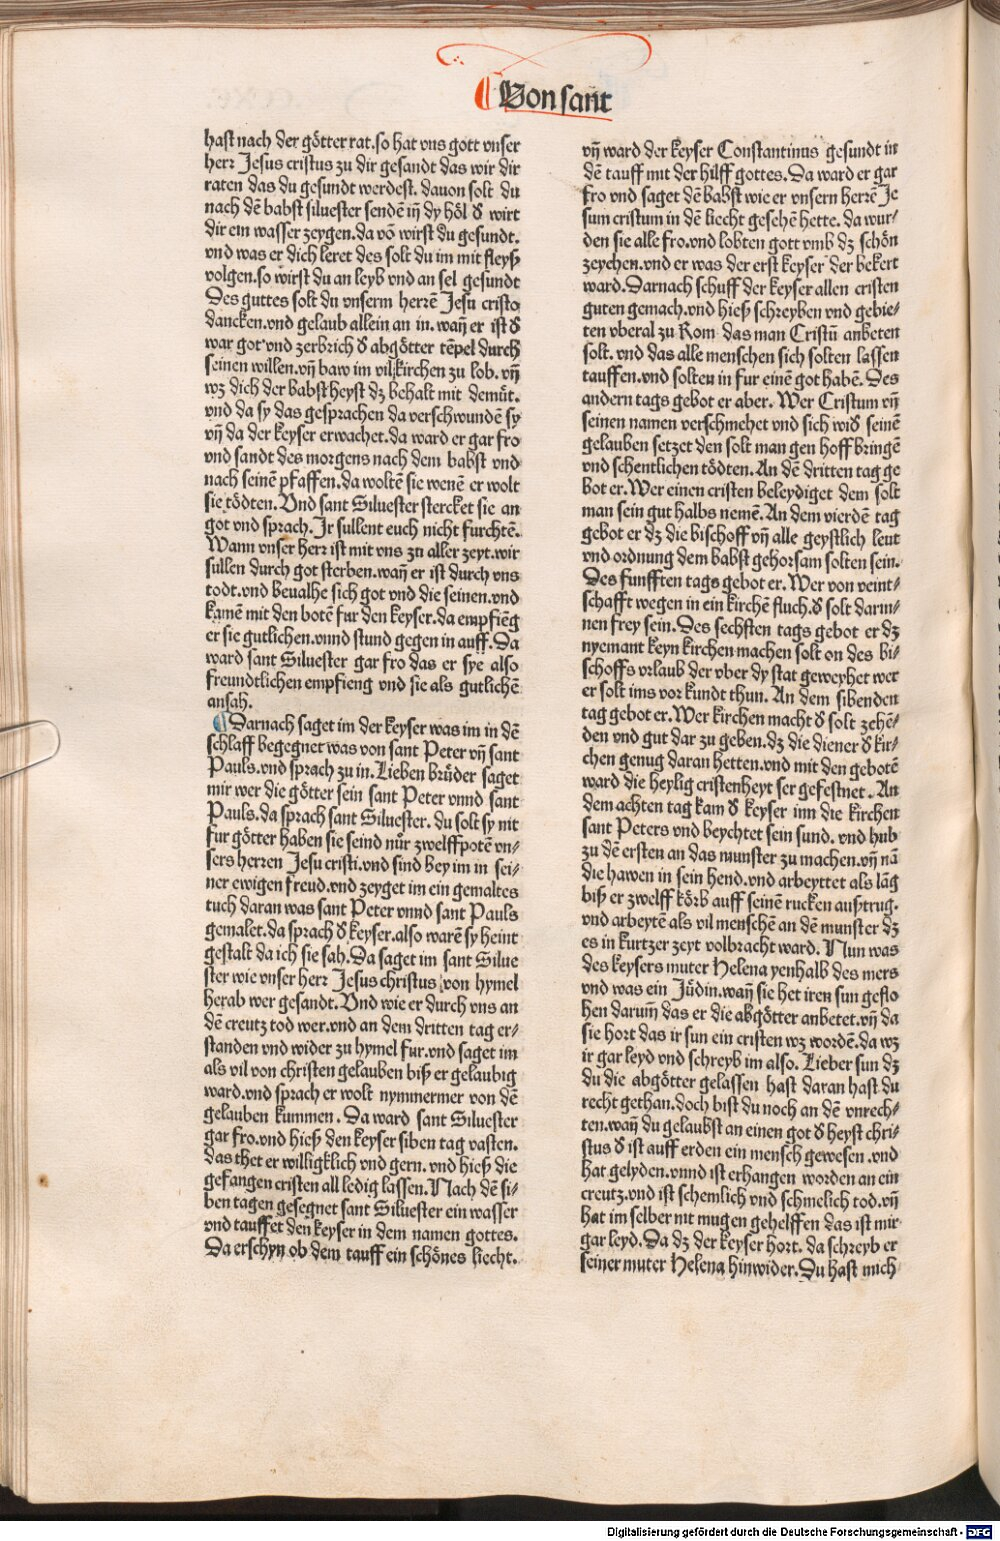 Von sant
hast nach der götter rat. so hat vns gott vnser
herr Jesus cristus zu dir gesandt das wir dir
raten das du gesundt werdest. dauon solt du
nach dē babst siluester sendē iñ dy höl d' wirt
dir ein wasser zeygen. da vō wirst du gesundt.
vnd was er dich leret des solt du im mit fleyß
volgen. so wirst du an leyb vnd an sel gesundt
Des guttes solt du vnserm herrē Jesu cristo
dancken. vnd gelaub allein an in. wañ er ist d'
war got vnd zerbrich d' abgötter tēpel durch
seinen willen. vñ baw im vil kirchen zu lob. vñ
wz dich der babst heyst dz behalt mit demůt.
vnd da sy das gesprachen da verschwundē sy
vñ da der keyser erwachet. da ward er gar fro
vnd sandt des morgens nach dem babst vnd
nach seinē pfaffen. da woltē sie wenē er wolt
sie tödten. Vnd sant Siluester stercket sie an
got vnd sprach. Ir sullent euch nicht furchtē.
Wann vnser herr ist mit vns zu aller zeyt. wir
sullen durch got sterben. wañ er ist durch vns
todt. vnd beualhe sich got vnd die seinen. vnd
kamē mit den botē fur den keyser. da empfiēg
er sie gutlichen. vnnd stund gegen in auff. Da
ward sant Siluester gar fro das er sye also
freundtlichen empfieng vnd sie als gutlichē
ansah.
Darnach saget im der keyser was im in dē
schlaff begegnet was von sant Peter vñ sant
Pauls. vnd sprach zu in. Lieben brüder saget
mir wer die götter sein sant Peter vnnd sant
Pauls. da sprach sant Siluester. du solt sy nit
fur götter haben sie seind nůr zwelffpotē vn/
sers herren Jesu cristi. vnd sind bey im in sei/
ner ewigen freud. vnd zeyget im ein gemaltes
tuch daran was sant Peter vnnd sant Pauls
gemalet. da sprach d' keyser. also warē sy heint
gestalt da ich sie sah. Da saget im sant Silue
ster wie vnser herr Jesus christus von hymel
herab wer gesandt. Vnd wie er durch vns an
dē creutz tod wer. vnd an dem dritten tag er/
standen vnd wider zu hymel fur. vnd saget im
als vil von christen gelauben biß er gelaubig
ward. vnd sprach er wolt nymmermer von dē
gelauben kummen. Da ward sant Siluester
gar fro. vnd hieß den keyser siben tag vasten.
das thet er willigklich vnd gern. vnd hieß die
gefangen cristen all ledig lassen. Nach dē si/
ben tagen gesegnet sant Siluester ein wasser
vnd tauffet den keyser in dem namen gottes.
Da erschyn ob dem tauff ein schönes liecht.
vñ ward der keyser Constantinus gesundt in
dē tauff mit der hilff gottes. Da ward er gar
fro vnd saget dē babst wie er vnsern herrē Je
sum cristum in dē liecht gesehē hette. da wur/
den sie alle fro. vnd lobten gott vmb dz schön
zeychen. vnd er was der erst keyser der bekert
ward. Darnach schuff der keyser allen cristen
guten gemach. vnd hieß schreyben vnd gebie/
ten vberal zu Rom das man Cristū anbeten
solt. vnd das alle menschen sich solten lassen
tauffen. vnd solten in fur einē got habē. Des
andern tags gebot er aber. Wer Cristum vñ
seinen namen verschmehet vnd sich wid' seinē
gelauben setzet den solt man gen hoff bringē
vnd schentlichen tödten. An dē dritten tag ge
bot er. Wer einen cristen beleydiget dem solt
man sein gut halbs nemē. An dem vierdē tag
gebot er dz die bischoff vñ alle geystlich leut
vnd ordnung dem babst gehorsam solten sein.
Des funfften tags gebot er. Wer von veint/
schafft wegen in ein kirchē fluch. d' solt darin/
nen frey sein. Des sechsten tags gebot er dz
nyemant keyn kirchen machen solt on des bi/
schoffs vrlaub der vber dy stat geweyhet wer
er solt ims vor kundt thun. An dem sibenden
tag gebot er. Wer kirchen macht d' solt zehē/
den vnd gut dar zu geben. dz die diener d' kir/
chen genug daran hetten. vnd mit den gebotē
ward die heylig cristenheyt ser gefestnet. An
dem achten tag kam d' keyser inn die kirchen
sant Peters vnd beychtet sein sund. vnd hub
zu dē ersten an das munster zu machen. vñ nā
die hawen in sein hend. vnd arbeyttet als lāg
biß er zwelff körb auff seinē rucken außtrug.
vnd arbeytē als vil menschē an dē munster dz
es in kurtzer zeyt volbracht ward. Nun was
des keysers muter Helena yenhalb des mers
vnd was ein Jüdin. wañ sie het iren sun geflo
hen darumm das er die abgötter anbetet. vñ da
sie hort das ir sun ein cristen wz wordē. da wz
ir gar leyd vnd schreyb im also. Lieber sun dz
du die abgötter gelassen hast daran hast du
recht gethan. doch bist du noch an dē vnrech/
ten. wañ du gelaubst an einen got d' heyst chri/
stus d' ist auff erden ein mensch gewesen. vnd
hat gelyden. vnnd ist erhangen worden an ein
creutz. vnd ist schemlich vnd schmelich tod. vñ
hat im selber nit mugen gehelffen das ist mir
gar leyd. Da dz der keyser hort. da schreyb er
seiner muter Helena hinwider. Du hast mich
Digitalisierung gefördert durch die Deutsche Forschungsgemeinschaft - DFG